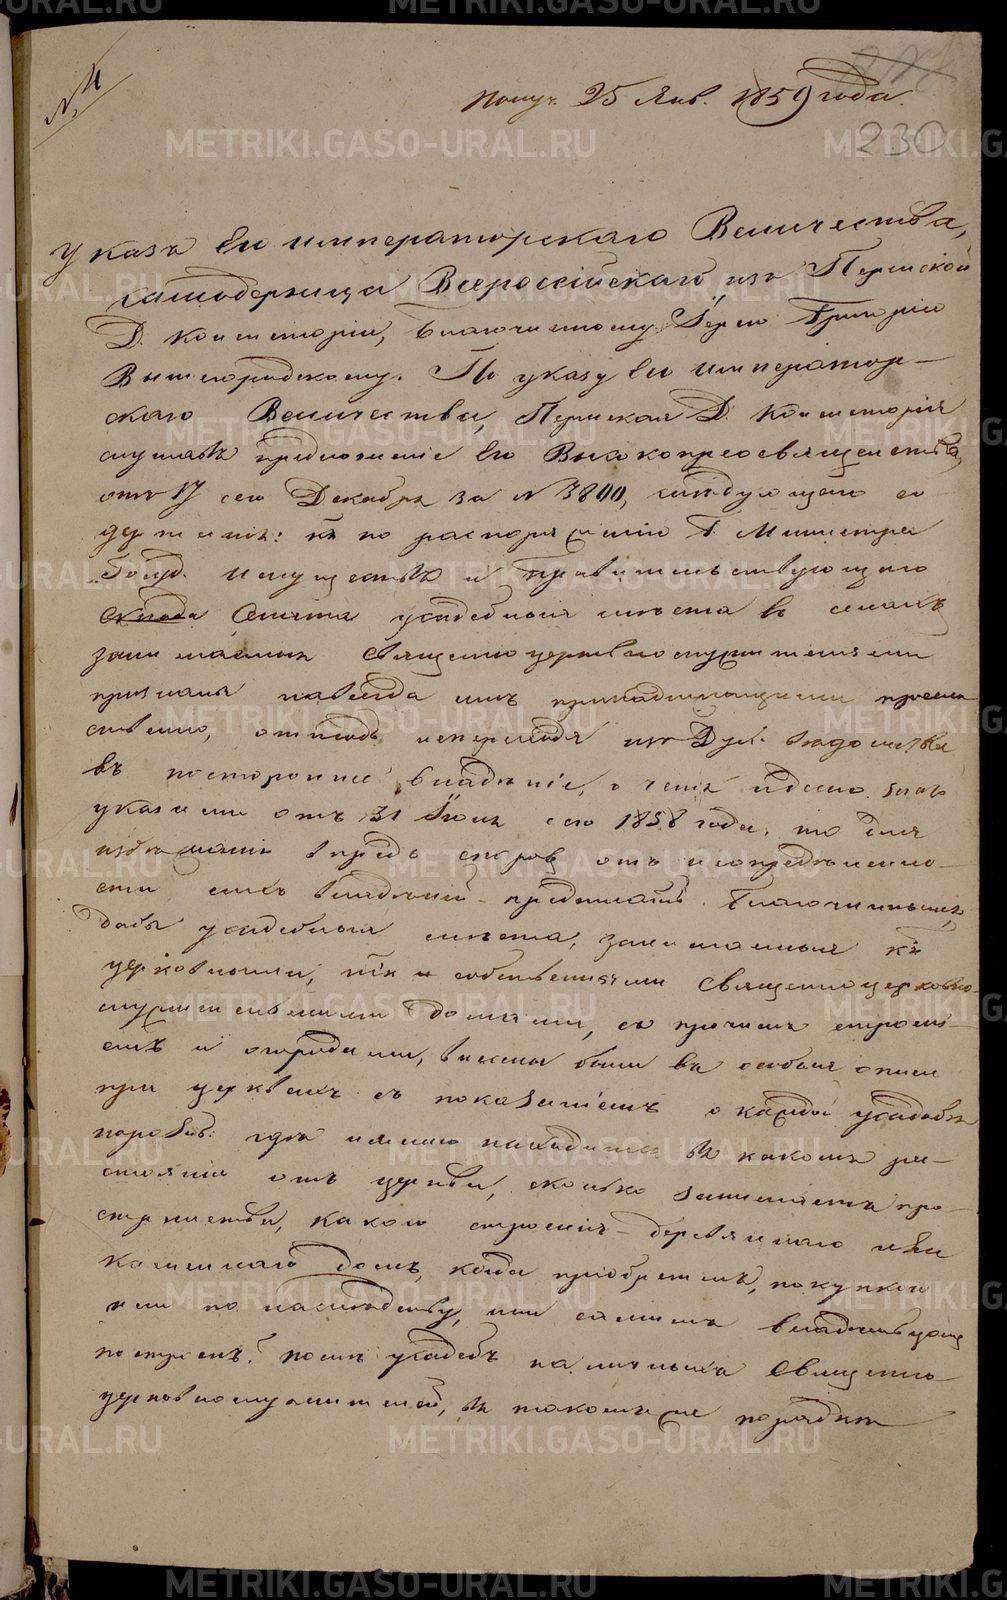 № 4
Получ. 25 Янв. 1859 года.
230
Указъ Его Императорскаго Величества,
Самодержца Всероссійскаго, изъ Пермской
Д. Консисторіи, Благочинному Іерею Григорію
Вышегородскому. По указу Его Император-
скаго Величества, Пермская Д. Консисторія
слушавъ предложеніе Его Высокопреосвященства,
отъ 17 сего Декабря за № 3800, слѣдующаго со
держанія: по распоряженію Г. Министра
Госуд. Имуществъ и Правительствующаго
Сѵнода усадебныя мѣста въ селахъ
занимаемыя священноцерковнослужителями
признаны навсегда имъ принадлежащими
ственно, отнюдь непереходя изъ Дух. вѣдомства
въ постороннее владѣніе, о чемъ и дано знать
указами отъ 31 Іюля сего 1858 года, то для
избѣжанія впредь споровъ отъ неопредѣленно-
сти сихъ владѣній предписать Благочиннымъ,
дабы усадебныя мѣста, занимаемыя какъ
церковными, такъ и собственными Священноцерковно-
служительскими домами, съ прочимъ строені-
емъ и огородами, внесены были въ особыя описи
при церквахъ съ показаніемъ о каждой усадьбѣ
порознь: гдѣ именно находится въ какомъ ра-
стояніи отъ церкви, сколько занимаетъ про-
странства, какого строенія деревяннаго или
каменнаго домъ, когда пріобрѣтенъ, покупкою
или по наслѣдству, или самимъ владѣльцемъ
построенъ. усадебъ наличныхъ Священно-
церковнослужителей, въ такомъ же порядкѣ
METRIKI.GASO-URAL.RU